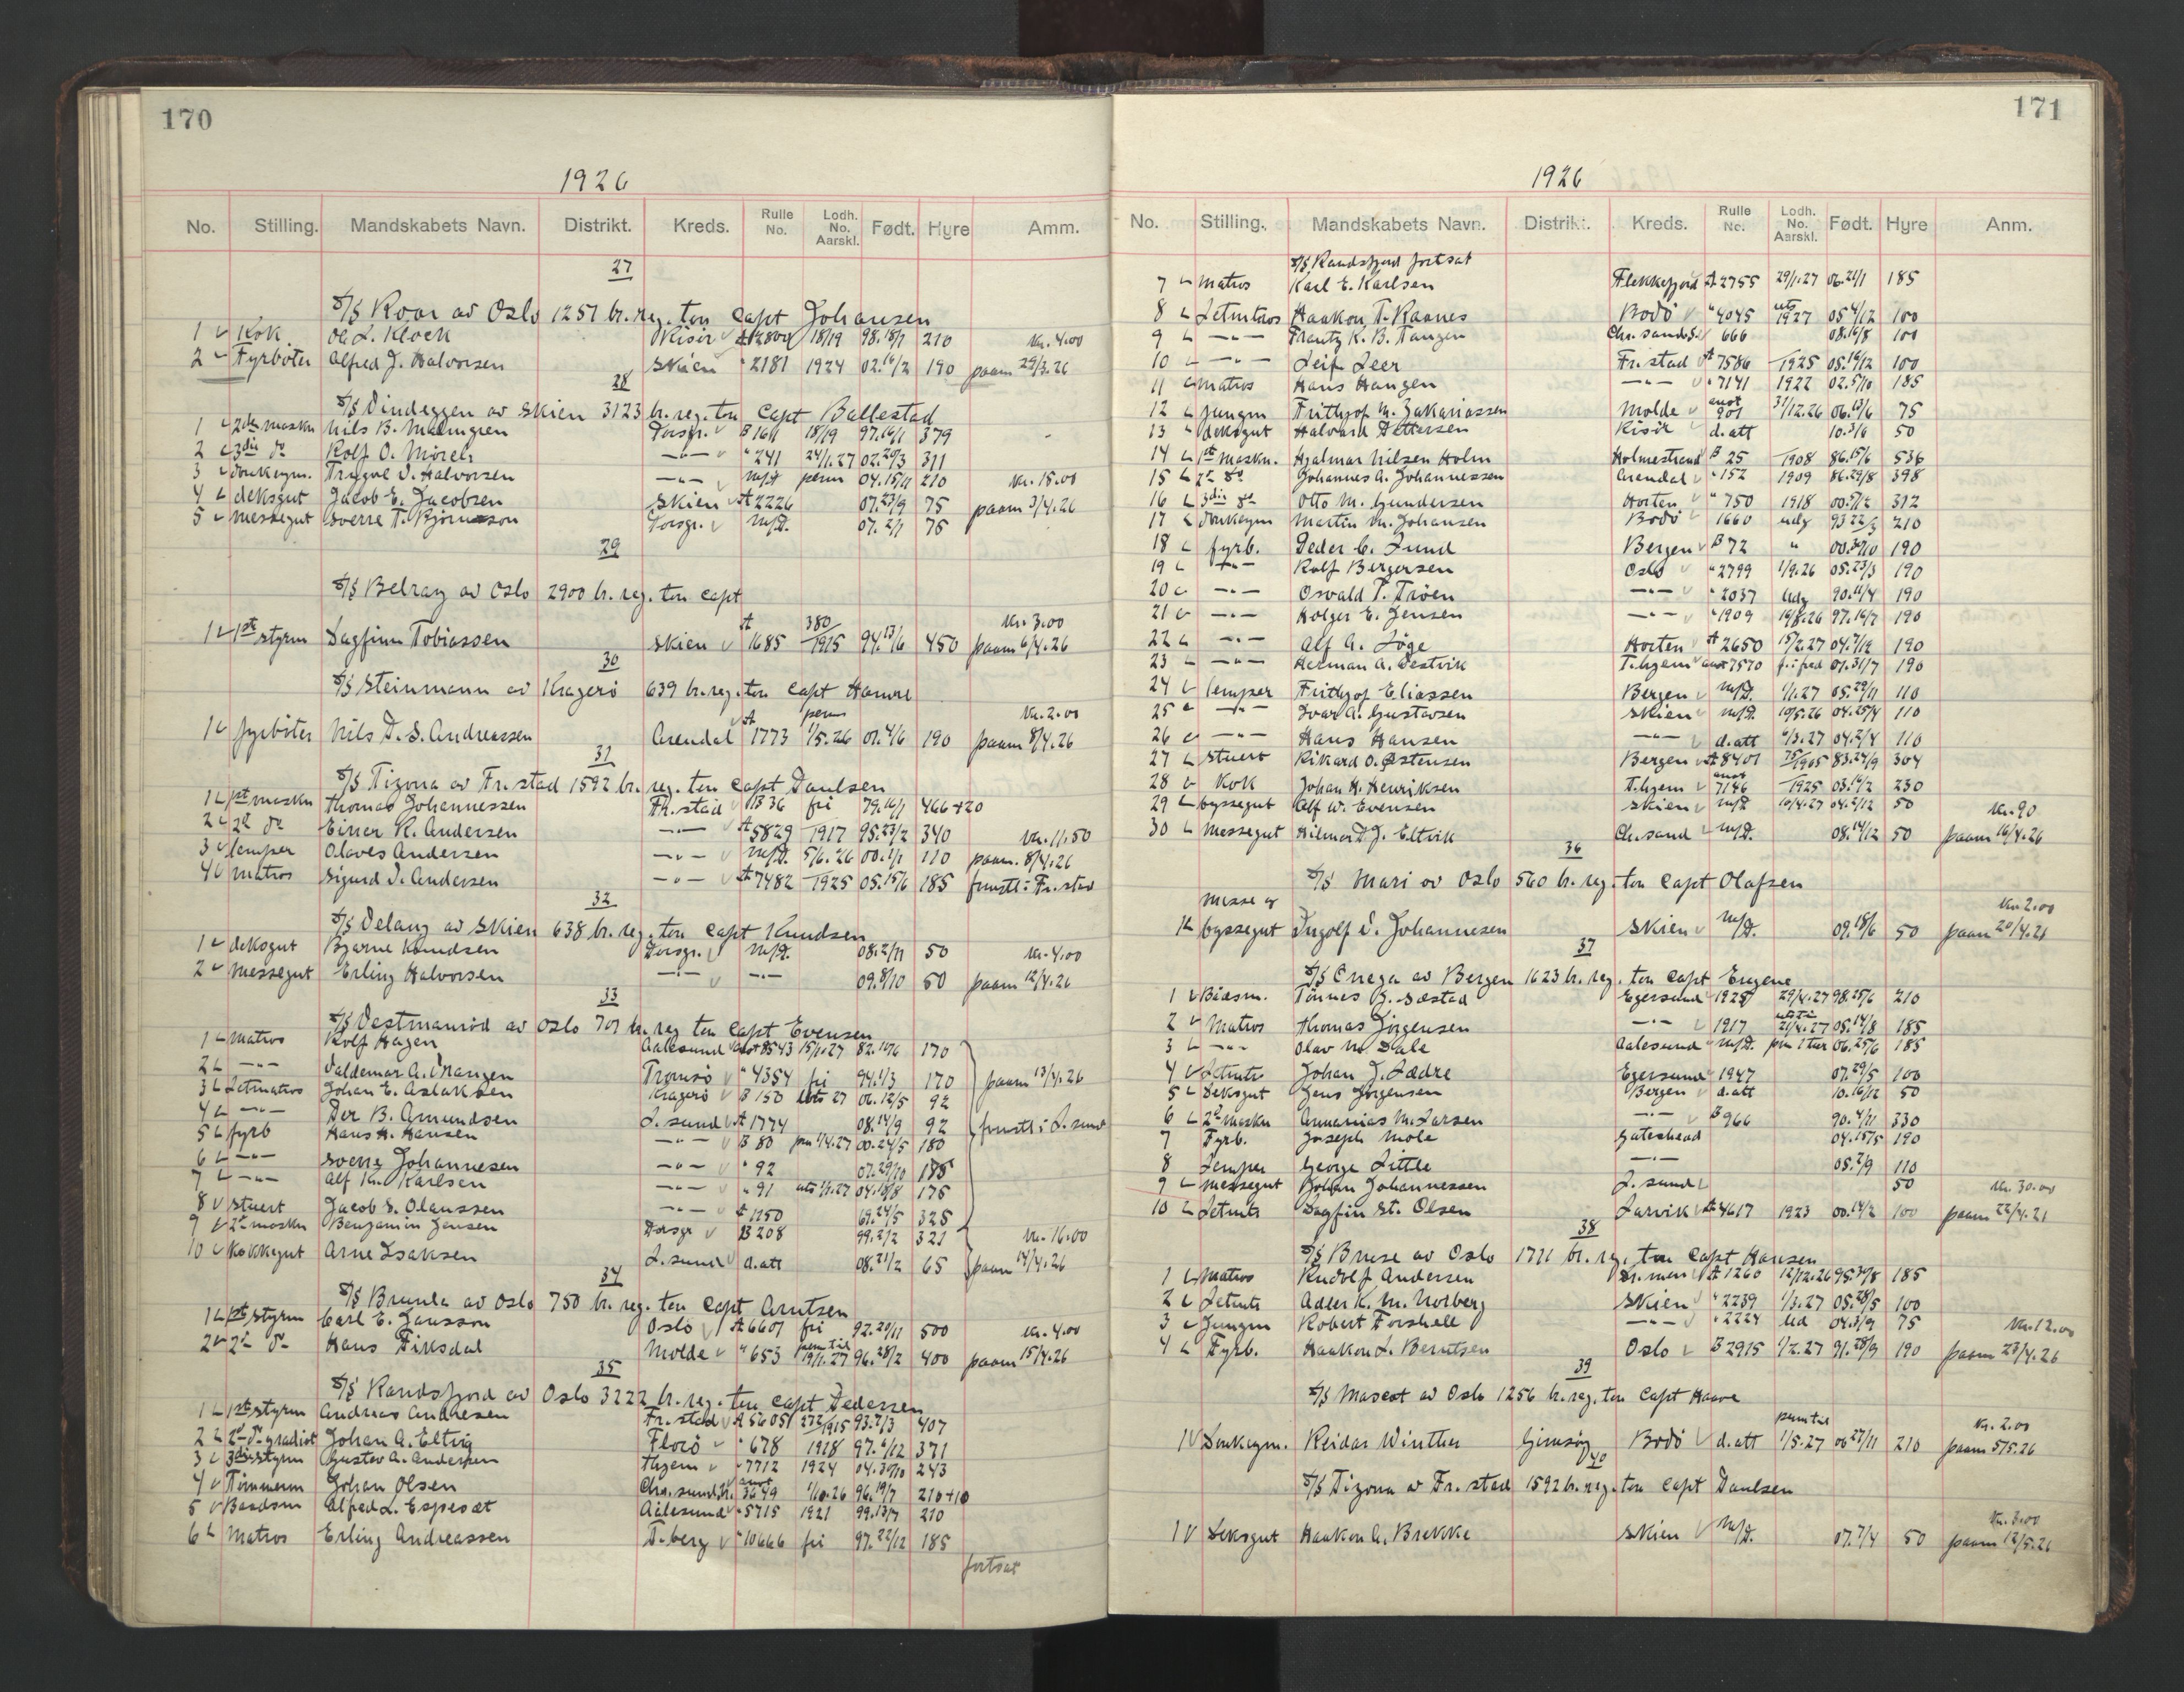 170
1926
No. Stilling. Mandskabets Navn. Distrikt. Kreds. Rulle No. Lodh. No. Aarskl. Født. Hyre Amm.
27
S/S Roar av Oslo 1257 br. reg. ton Capt Johansen
1 Kok Ole L. Klock Risör A 2800 18/19 98.18/7 210 Kr. 4.00
2 Fyrböter Alfred J. Halvorsen Skien " 2181 1924 02.16/2 190 paam 29/3.26
28
S/S Vindeggen av Skien 3123 br. reg. ton Capt Ballestad
1 2den maskn Nils B. Malmgren Porsgr. B 1611 18/19 97.16/1 379
2 3die do Rolf O. Mörch —"— " 241 24/1.27 02.20/3 311
3 donkeym. Trygve I. Halvorsen —"— M/P. perm 04.15/11 210 Kr. 15.00
4 deksgut Jacob E. Jacobsen Skien A 2226 07.23/9 75 paam 3/4.26
5 messegut Sverre T. Björnsson Porsgr. M/P. 07.2/1 75
29
S/S Belray av Oslo 2900 br. reg. ton Capt
1 1ste styrm Dagfinn Tobiassen Skien A 1685 380/1915 94.13/6 450 Kr. 3.00 paam 6/4.26
30
S/S Steinmann av Kragerö 639 br. reg. ton Capt Hamre
1 fyrböter Nils D. S. Andreassen Arendal A 1773 perm 1/5.26 01.4/6 190 Kr. 2.00 paam 8/4.26
31
S/S Tizona av Fr. stad 1592 br. reg. ton Capt Paulsen
1 1st maskn Thomas Johannessen Fr. stad B 36 fri 79.16/1 466+20
2 2d do Einer R. Andersen —"— A 5829 1917 95.23/2 340 Kr. 11.50
3 lemper Olaves Andersen —"— M/P. 5/6.26 00.1/1 110 paam. 8/4.26
4 matros Sigurd I. Andersen —"— A 7482 1925 05.15/6 185 frmstl i Fr. stad
32
S/S Delang av Skien 638 br. reg. ton Capt Knudsen
1 deksgut Bjarne Knudsen Porsgr. M/P. 08.2/11 50 Kr. 4.00
2 messegut Erling Halvorsen —"— —"— 09.8/10 50 paam 12/4.26
33
S/S Vestmanröd av Oslo 707 br. reg ton Capt Evensen
1 Matros Rolf Hagen Aalesund anot 8543 15/1.27 82.10/6 170
2 —"— Valdemar A. Wangen Tromsö " 4354 fri 94.1/3 170 paam 13/4.26
3 Letmatros Johan E. Aslaksen Kragerö B 150 uts 27 06.12/5 92
4 —"— Per B. Amundsen L. sund A 1774 08.14/9 92 frmstl i L. sund
5 fyrb Hans H. Hansen —"— B 80 prm 1/4.27 00.24/5 180
6 —"— Sverre Johannesen —"— " 92 07.29/10 185
7 —"— Alf Kr. Karlsen —"— " 91 uts 1/1.27 04.18/8 175
8 Stuert Jacob S. Olaussen —"— A 1150 69.24/5 325
9 2d maskn Benjamin Jensen Porsgr B 208 99.2/2 321 Kr. 16.00
10 Kokkegut Arne Isaksen L. sund d. att 08.21/2 65 paam 14/4.26
34
S/S Brunla av Oslo 750 br. reg. ton Capt Arntsen
1 1st styrm Carl E. Jansson Oslo A 6607 fri 92.20/11 500 Kr. 4.00
2 2d do Hans Fiksdal Molde " 653 perm til 19/1.27 96.28/2 400 paam 15/4.26
35
S/S Randsfjord av Oslo 3222 br. reg. ton Capt Pedersen
1 1ste styrm Andreas Andresen Fr. stad A 5605 272/1915 93.7/3 407
2 2d do gradiot Johan A. Eltvig Florö " 678 1918 97.6/12 371
3 3die styrm Gustav A. Andersen Thjem " 7712 1924 04.30/10 243
4 Timmerm Johan Olsen Chr. sund N. anot 3649 1/10.26 96.19/7 210+10
5 Baadsm Alfred L. Espesæt Aalesund " 5715 1921 99.13/7 210
6 Matros Erling Andreassen T. berg " 10666 fri 97.22/12 185
fortsat
171
1926
No. Stilling. Mandskabets Navn. Distrikt. Kreds. Rulle No. Lodh. No. Aarskl. Født. Hyre Anm.
S/S Randsfjord fortsat
7 Matros Karl E. Karlsen Flekkefjord A 2755 29/1.27 06.21/1 185
8 Letmtros Haakon T. Raanes Bodö " 4045 uts 1927 05.4/12 100
9 —"— Frantz K. B. Tangen Chr. sand S. 666 08.16/8 100
10 —"— Leif Leer Fr. stad A 7586 1925 05.16/12 100
11 matros Hans Haugen —"— " 7141 1922 02.5/10 185
12 jungm Frithjof M. Zakariassen Molde anot 901 31/12.26 06.13/6 75
13 deksgut Halvard Pettersen Risör d. att 10.3/6 50
14 1st maskn. Hjalmar Nilsen Holm Holmestrand B 25 1908 86.15/6 536
15 2d do Johannes A. Johannessen Arendal " 152 1909 86.29/8 398
16 3die do Otto M. Gundersen Horten " 750 1918 00.5/12 312
17 donkeym Martin M. Johansen Bodö 1660 udg 93 22/3 210
18 fyrb. Peder C. Lund Bergen B 72 " 00.30/10 190
19 —"— Rolf Bergersen Oslo " 2799 1/9.26 05.23/3 190
20 —"— Osvald P. Tröen —"— " 2037 udg 90.11/4 190
21 —"— Holger E. Jensen —"— " 1909 16/8.26 97.16/7 190
22 —"— Alf A. Löge Horten A 2650 15/2.27 04.7/12 190
23 —"— Herman A. Vestvik T.hjem anot 7570 f. i fred 01.31/7 190
24 lemper Frithjof Eliassen Bergen M/P. 1/1.27 05.29/11 110
25 —"— Ivar A. Gustavsen Skien M/P. 10/5.26 04.25/4 110
26 —"— Hans Hansen —"— d. att 6/3.27 04.2/4 110
27 Stuert Rikard O. Østensen Bergen A 8401 75/1905 83.24/9 304
28 Kok Johan H. Henriksen T.hjem anot 7146 1925 03.16/2 230
29 byssegut Alf W. Evensen Skien M/P 16/4.27 04.2/12 50 Kr. 90
30 Messegut Hilmar J. Eltvik Ch. sand M/P. 08.14/12 50 paam 16/4.26
36
S/S Mari av Oslo 560 br. reg. ton Capt Olafsen
1 Messe og byssegut Ingolf I. Johannesen Skien M/P. 09.18/6 50 Kr. 2.00 paam 20/4.26
37
S/S Cnega av Bergen 1623 br. reg. ton Capt Eugene
1 Baadsm. Tönnes J. Sæstad Egersund 1925 29/4.27 98.25/6 210
2 Matros Thomas Jörgensen —"— 1917 uts til 21/4.27 05.14/8 185
3 —"— Olav M. Dale Aalesund M/P. prm 1 tur 06.25/6 185
4 Letmts Johan J. Lædre Egersund 1947 07.29/5 100
5 Deksgut Jens Jörgensen Bergen d. att 10.16/12 50
6 2d maskn Annanias M. Larsen —"— B 966 90.4/11 330
7 Fyrb. Joseph Mole Gateshead 04.15/5 190
8 Lemper George Little —"— 05.7/9 110
9 messegut Johan Johannessen L. sund 50 Kr. 30.00
10 Letmts Dagfin St. Olsen Larvik A 4617 1923 00.14/2 100 paam 22/4.21
38
S/S Bruse av Oslo 1711 br. reg. ton Capt Hansen
1 Matros Rudolf Andersen Dr. men A 1260 12/12.26 95.30/8 185
2 Letmts Adler K. M. Norberg Skien " 2239 1/3.27 05.28/5 100
3 Jungm Robert Forshell —"— " 2224 led 04.3/9 75 Kr. 12.00
4 Fyrb. Haakon L. Berntsen Oslo B 2915 1/2.27 91.28/9 190 paam 23/4.26
39
S/S Mascot av Oslo 1256 br. reg. ton Capt Haave
1 Donkeym. Reidar Winther Gimsöy Bodö d. att perm til 1/5.27 06 27/11 210 Kr. 2.00 paam 5/5.26
40
S/S Tizona av Fr. stad 1592 br. reg. ton Capt Paulsen
1 Deksgut Haakon A. Brekke Skien M/P. 07.7/4 50 Kr. 3.00 paam 12/5.26